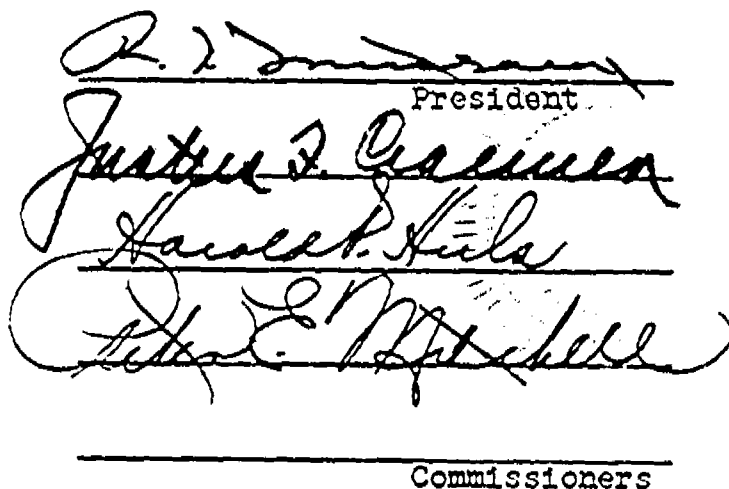 R.
President
Justus F. Craemer
Harold P. Huls
Peter E. Mitchell
Commissioners